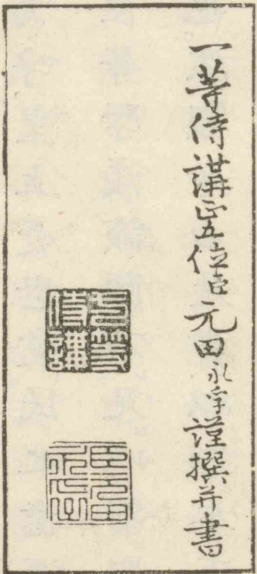 一等侍講正五位臣元田永孚謹撰并書
一等侍講
臣元田永孚